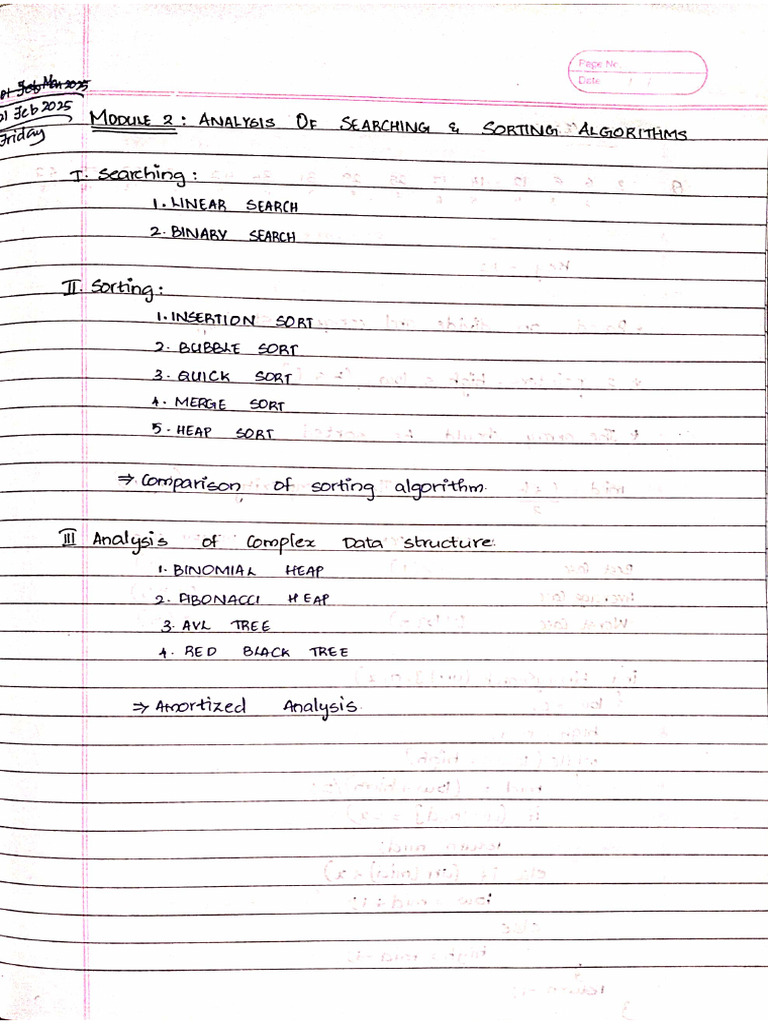 Page No.
Date / /
21 Feb 2025
Friday
MODULE 2 : ANALYSIS OF SEARCHING & SORTING ALGORITHMS
I. Searching :
1. LINEAR SEARCH
2. BINARY SEARCH
II. Sorting :
1. INSERTION SORT
2. BUBBLE SORT
3. QUICK SORT
4. MERGE SORT
5. HEAP SORT
⇒ Comparison of sorting algorithm.
III Analysis of Complex Data structure.
1. BINOMIAL HEAP
2. FIBONACCI HEAP
3. AVL TREE
4. RED BLACK TREE
⇒ Amortized Analysis.